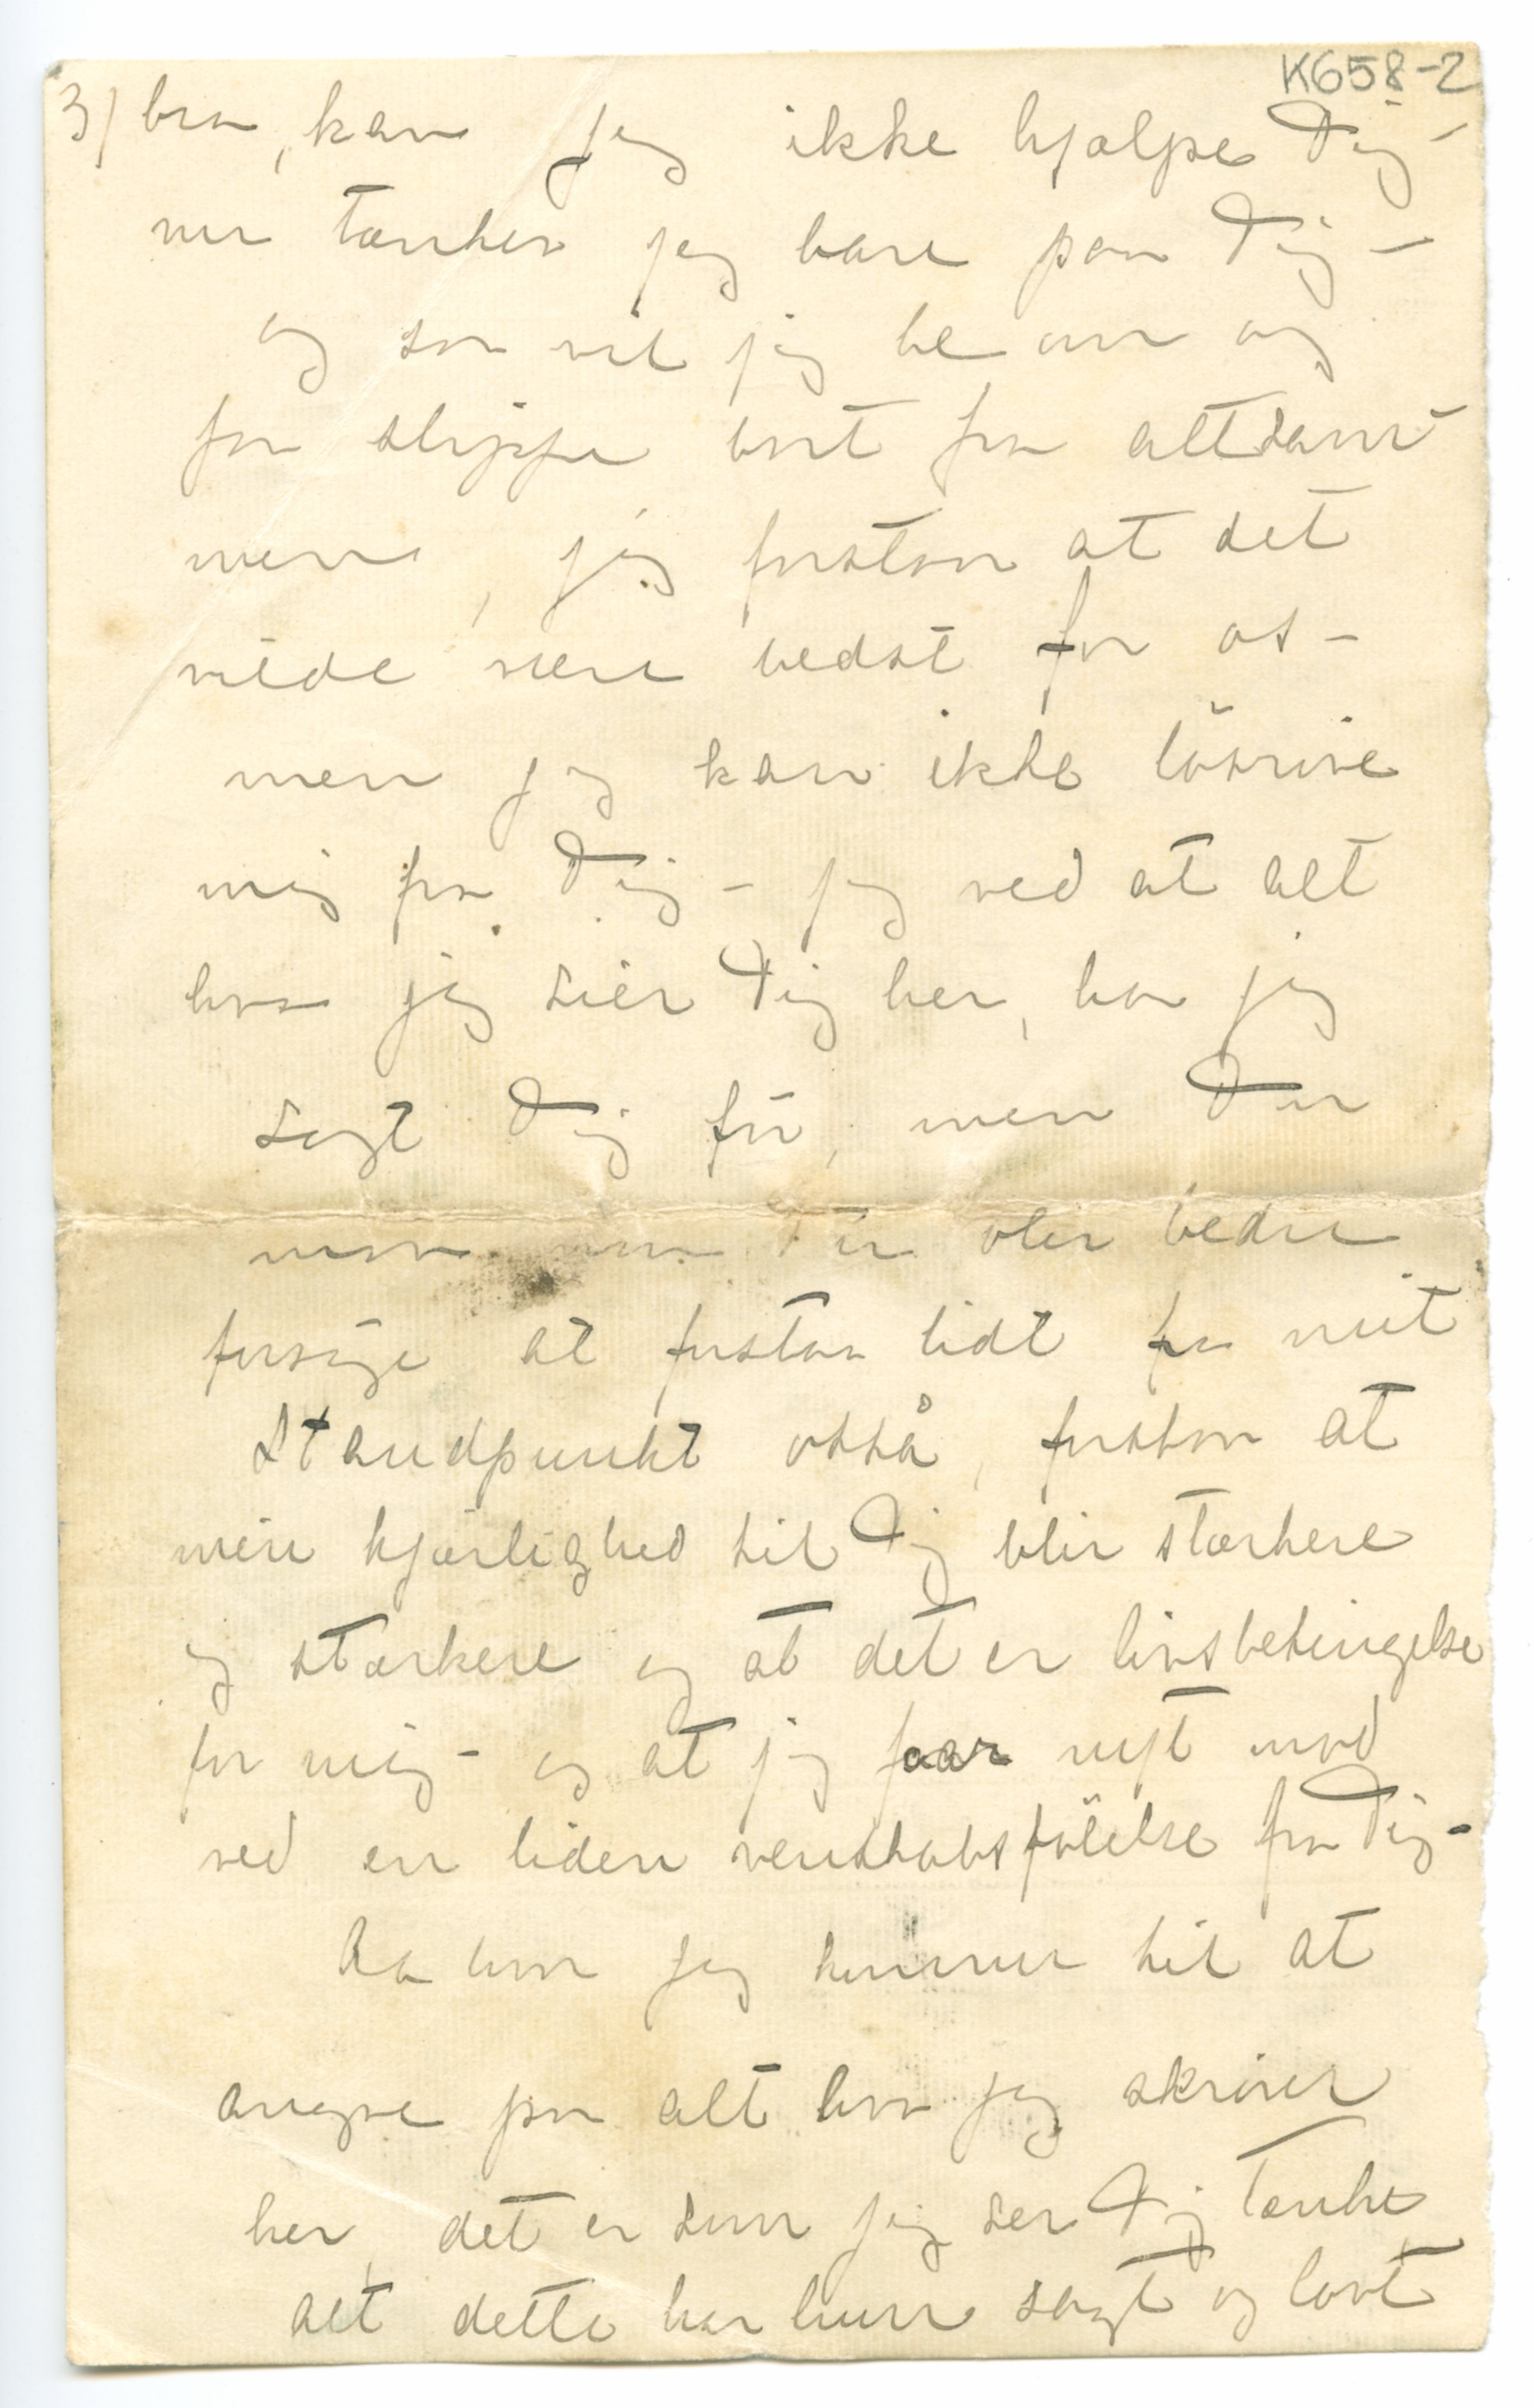 K658-2
3) bra, kan jeg ikke hjælpe Dig –
nu tænker jeg bare paa Dig –
og saa vil jeg be om og
faa slippe bort fra altsam
men, jeg forstaar at det
vilde være bedst for os –
men jeg kan ikke lösrive
mig fra Dig – jeg ved at alt
hva jeg sier Dig her, har jeg
sagt Dig för, men Du
maa naar blir bedre
forsöge at forstaa lidt fra mit
Standpunkt osså, forstaa at
min kjærlighed til Dig blir stærkere
og stærkere og at det er livsbetingelse
for mig – og at jeg faar nyt mod
ved en liden venskabsfölelse fra Dig –
Aa hvor jeg kommer til at
angre paa alt hva jeg skriver
her, det er som jeg ser Dig tænke
alt dette har hun sagt og lovt